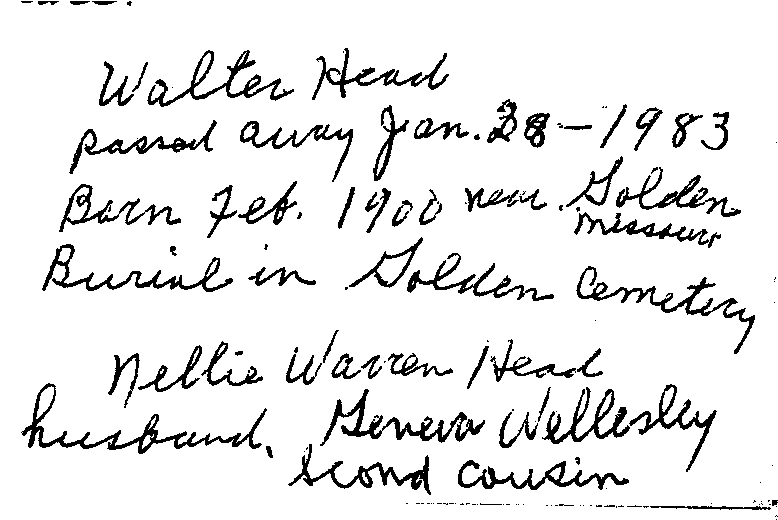 Walter Head
passed away Jan. 28 - 1983
Born Feb. 1900 near Golden
Missouri
Burial in Golden Cemetery
Nellie Warren Head
husband. Geneva Wellesley
Scond cousin